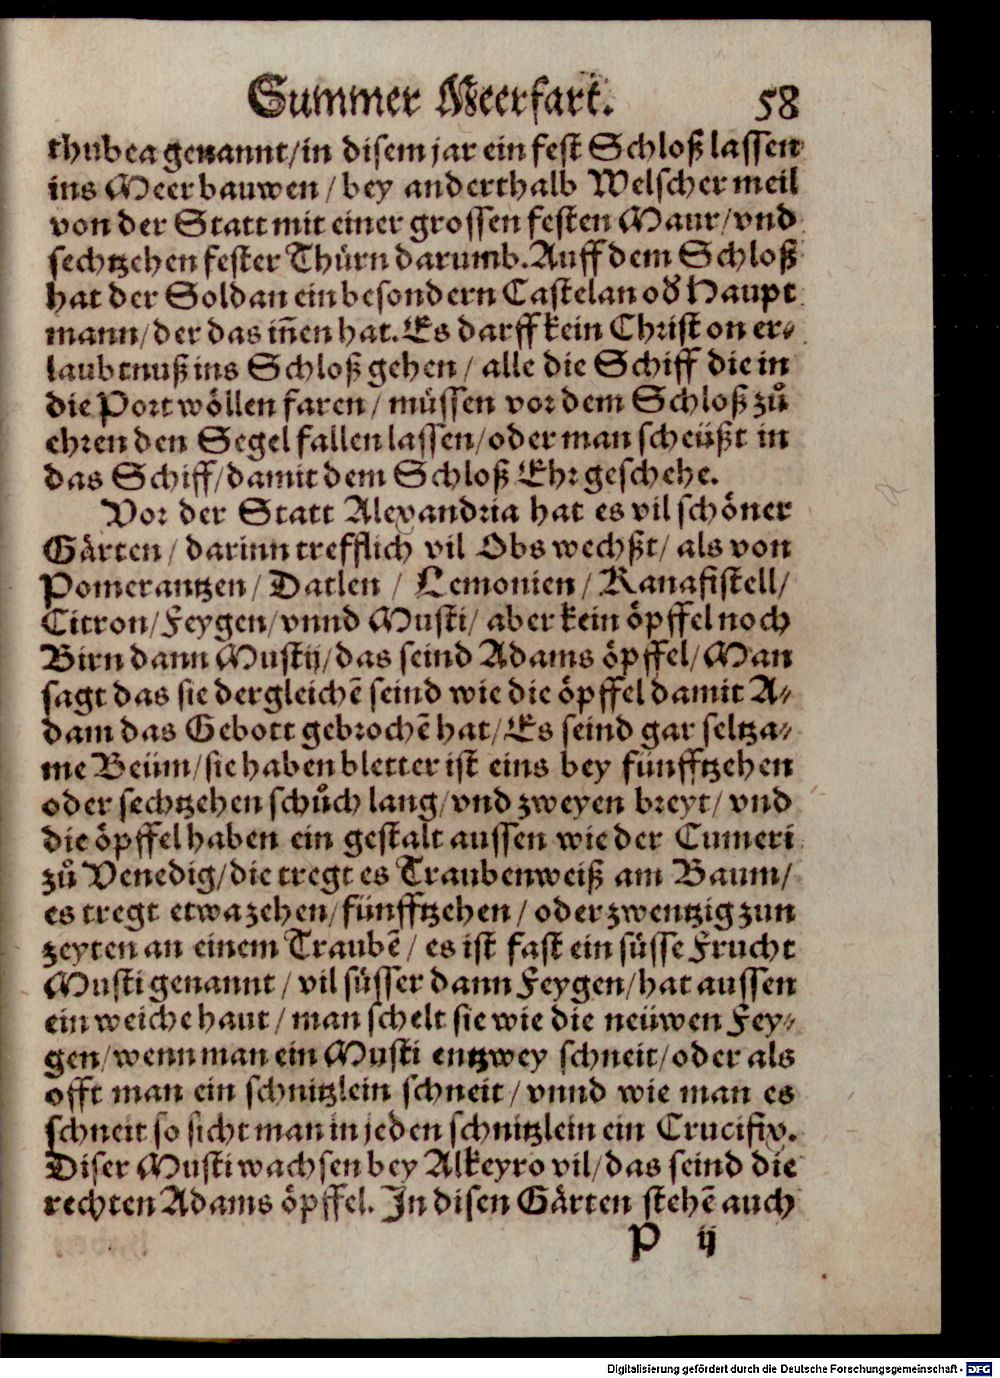 Summer Meerfart. 58
thubea genannt/in disem jar ein fest Schloß lassen
ins Meer bauwen / bey anderthalb Welscher meil
von der Statt mit einer grossen festen Maur/vnd
sechtzehen fester Thürn darumb. Auff dem Schloß
hat der Soldan ein besondern Castelan od̕ Haupt
mann/der das iñen hat. Es darff kein Christ on er-
laubtnuß ins Schloß gehen / alle die Schiff die in
die Port wöllen faren / müssen vor dem Schloß zů
ehren den Segel fallen lassen/oder man scheüßt in
das Schiff/damit dem Schloß Ehr geschehe.
Vor der Statt Alexandria hat es vil schöner
Gärten / darinn trefflich vil Obs wechßt/ als von
Pomerantzen/ Datlen / Lemonien / Kanafistell/
Citron/Feygen/vnnd Musti/ aber kein öpffel noch
Birn dann Mustij/das seind Adams öpffel/Man
sagt das sie dergleichē seind wie die öpffel damit A-
dam das Gebott gebrochē hat/Es seind gar seltza-
me Beüm/sie haben bletter ist eins bey fünfftzehen
oder sechtzehen schůch lang/vnd zweyen breyt/ vnd
die öpffel haben ein gestalt aussen wie der Cumeri
zů Venedig/die tregt es Traubenweiß am Baum/
es tregt etwa zehen/fünfftzehen / oder zwentzig zun
zeyten an einem Traubē / es ist fast ein süsse Frucht
Musti genannt / vil süsser dann Feygen/hat aussen
ein weiche haut / man schelt sie wie die neüwen Fey-
gen/wenn man ein Musti entzwey schneit/oder als
offt man ein schnitzlein schneit / vnnd wie man es
schneit so sicht man in jeden schnitzlein ein Crucifix.
Diser Musti wachsen bey Alkeyro vil/das seind die
rechten Adams öpffel. In disen Gärten stehē auch
P ij
Digitalisierung gefördert durch die Deutsche Forschungsgemeinschaft - DFG